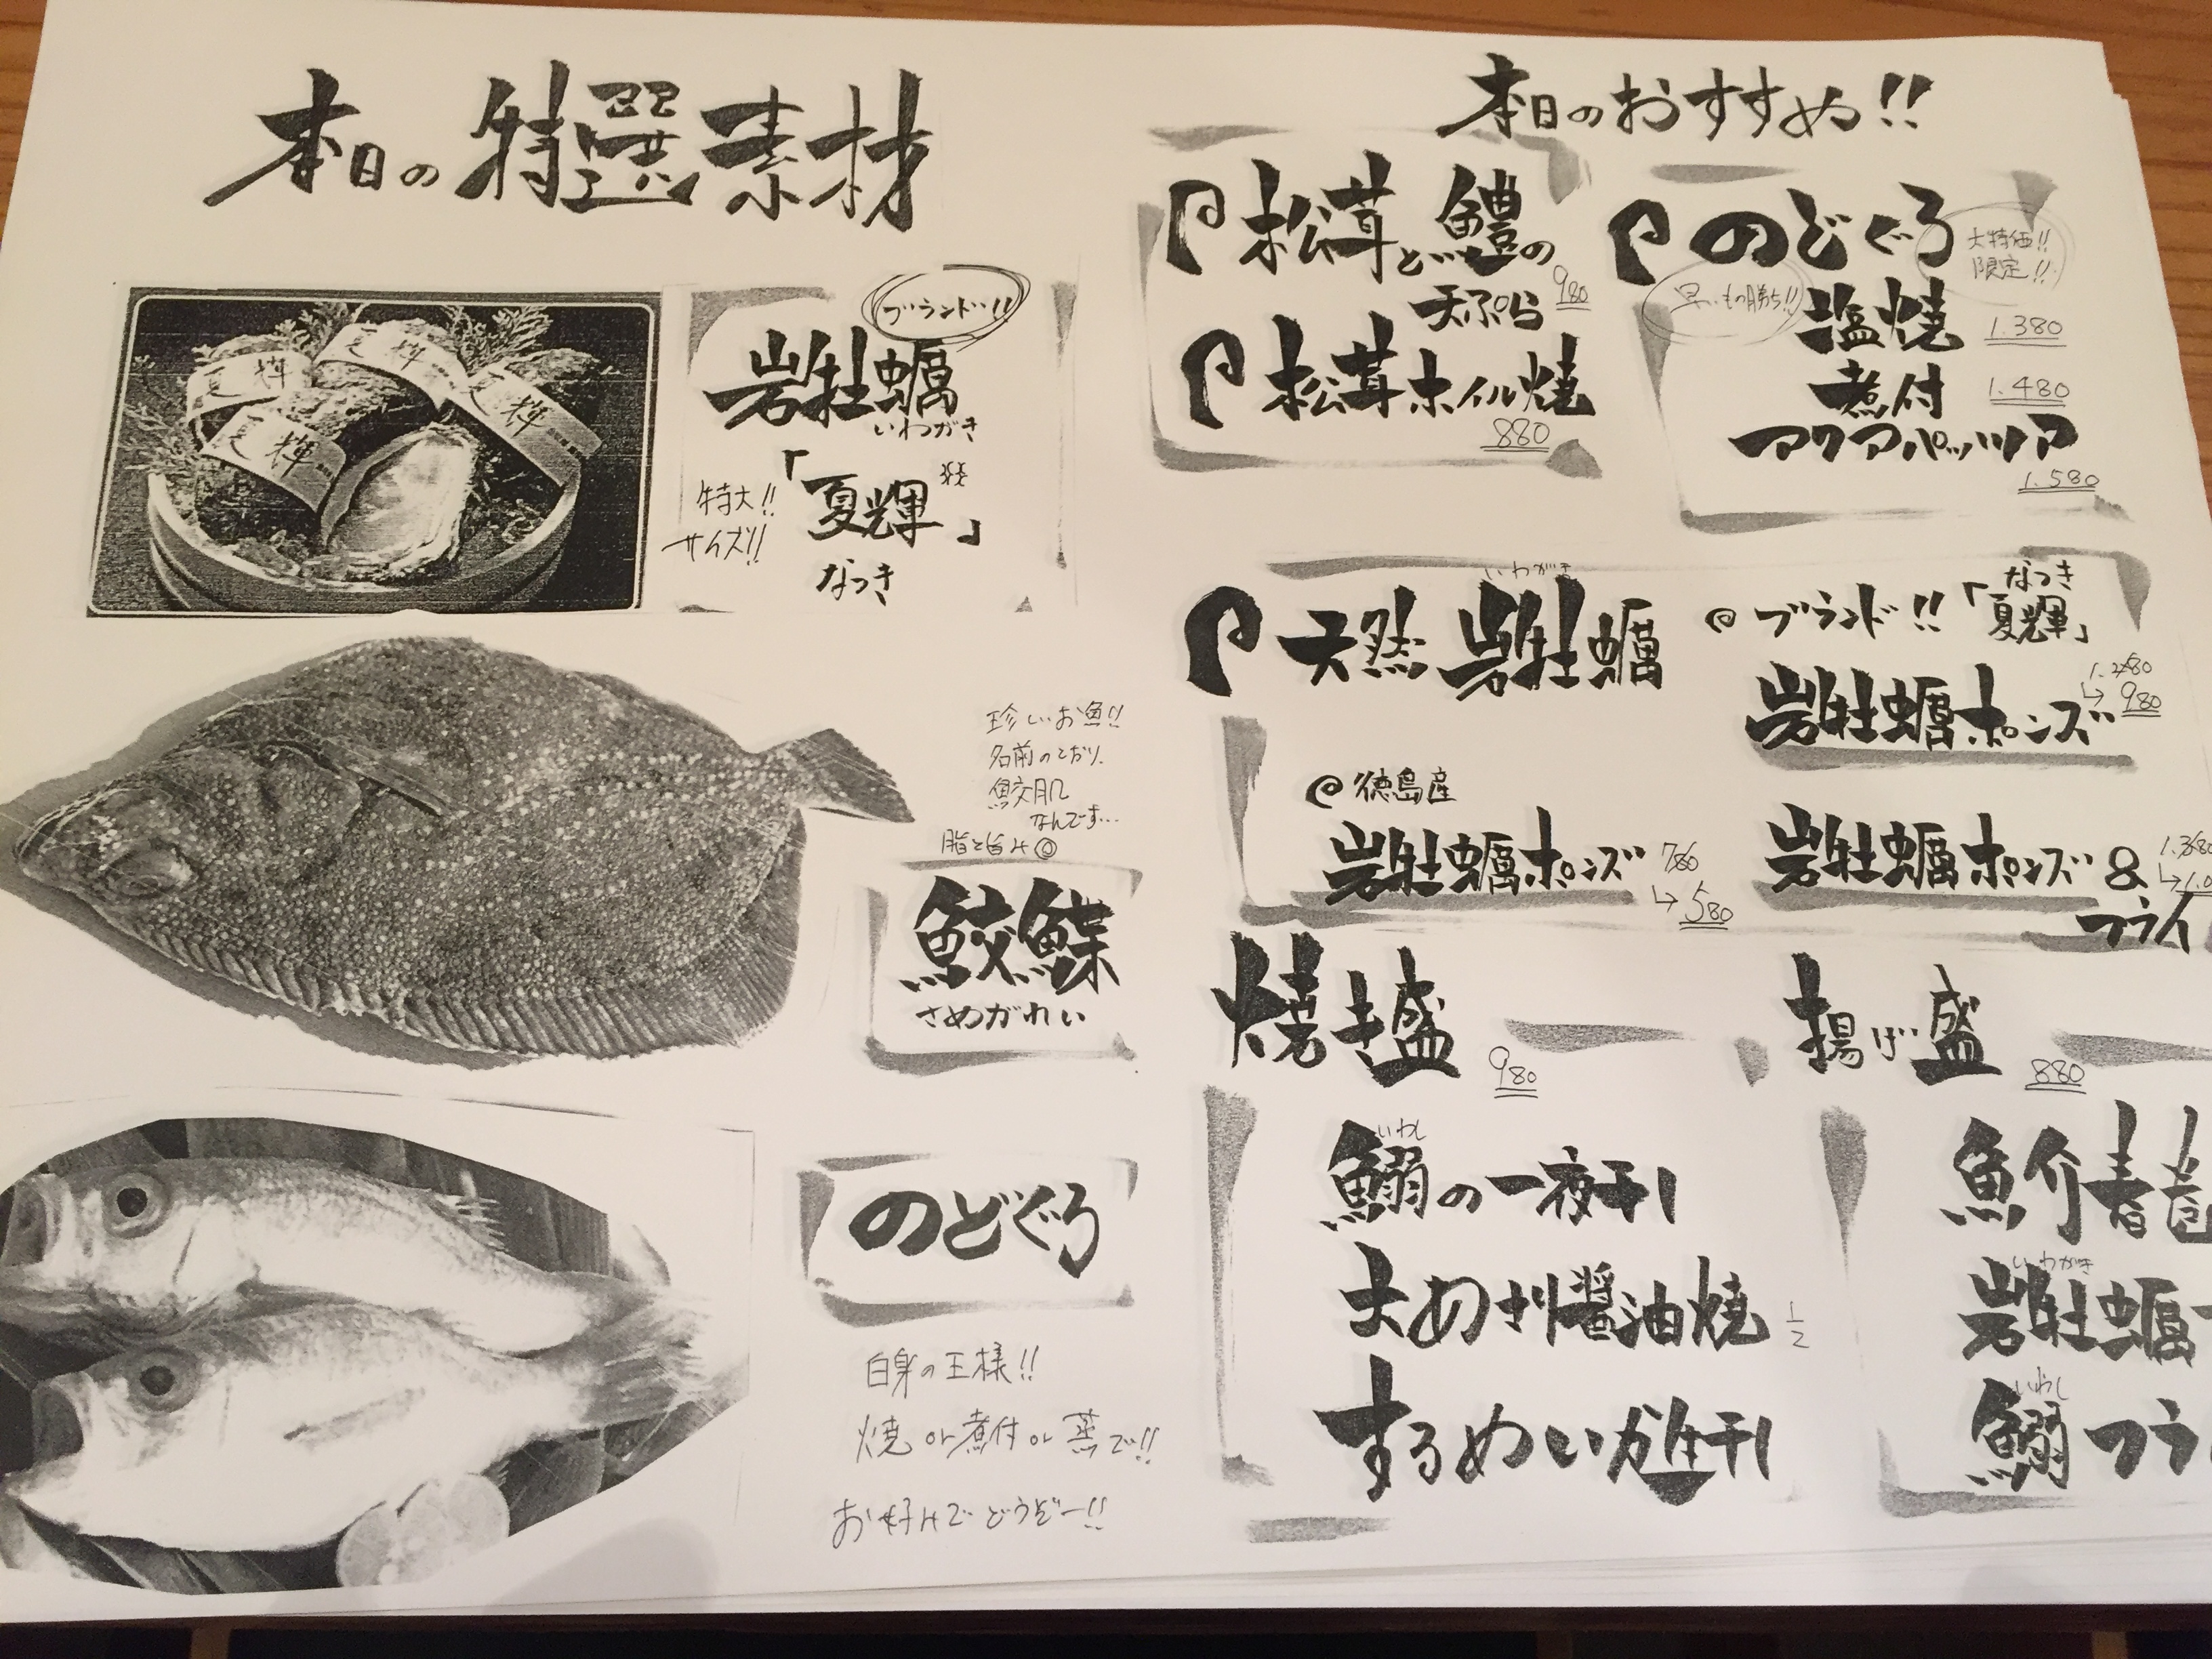 本日の特選素材
夏輝
夏輝
夏輝
夏輝
ブランド!!
岩牡蠣
いわがき
特大!!
サイズ!!
「夏輝」
なつき
珍しいお魚!!
名前のとおり、
鮫肌
なんです…
脂と旨み◎
鮫鰈
さめがれい
のどぐろ
白身の王様!!
焼or煮付or蒸で!!
お好みでどうぞー!!
本日のおすすめ!!
松茸と鱧の
天ぷら
980
松茸ホイル焼
880
のどぐろ
大特価!!
限定!!
早いもの勝ち!!
塩焼
1.380
煮付
1.480
アクアパッツァ
1.580
いわがき
天然 岩牡蠣
徳島産
岩牡蠣ポンズ 780
→580
ブランド!!「夏輝」
なつき
岩牡蠣ポンズ
1.280
→980
岩牡蠣ポンズ&
フライ
焼き盛
980
いわし
鰯の一夜干し
大あさり醤油焼 1/2
するめいか生干し
揚げ盛
880
魚介春
いわがき
岩牡蠣
いわし
鰯フラ